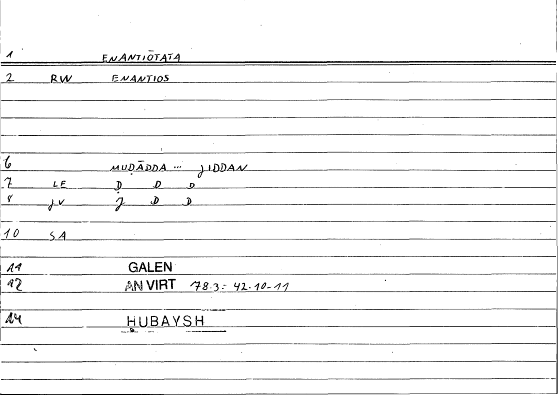 1 ENANTIŌTATA
2 RW ENANTIOS
6 MUḌĀDDA ... JIDDAN
7 LE Ḍ D D
8 JV J D D
10 SA
11 GALEN
12 AN VIRT 78.3 = 42.10-11
14 ḤUBAYSH